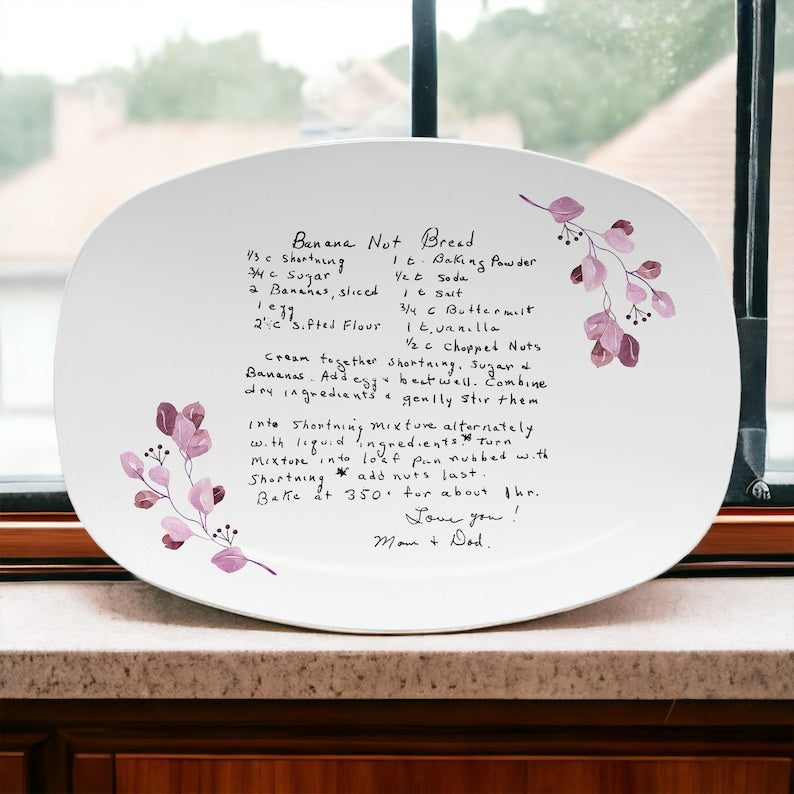 Banana Nut Bread
1/3 c shortning
3/4 c Sugar
2 Bananas, sliced
1 egg
2 1/2 c Sifted Flour
1 t. Baking Powder
1/2 t Soda
1 t Salt
3/4 c Buttermilt
1 t, vanilla
1/2 c Chopped Nuts
Cream together shortning, Sugar &
Bananas.. Add egg & beat well. Combine
dry ingredients & gently Stir them
into Shortning mixture alternately
with liquid ingredients.* Turn
Mixture into loaf pan rubbed with
Shortning * add nuts last.
Bake at 350° for about 1hr.
Love you!
Mom + Dad.